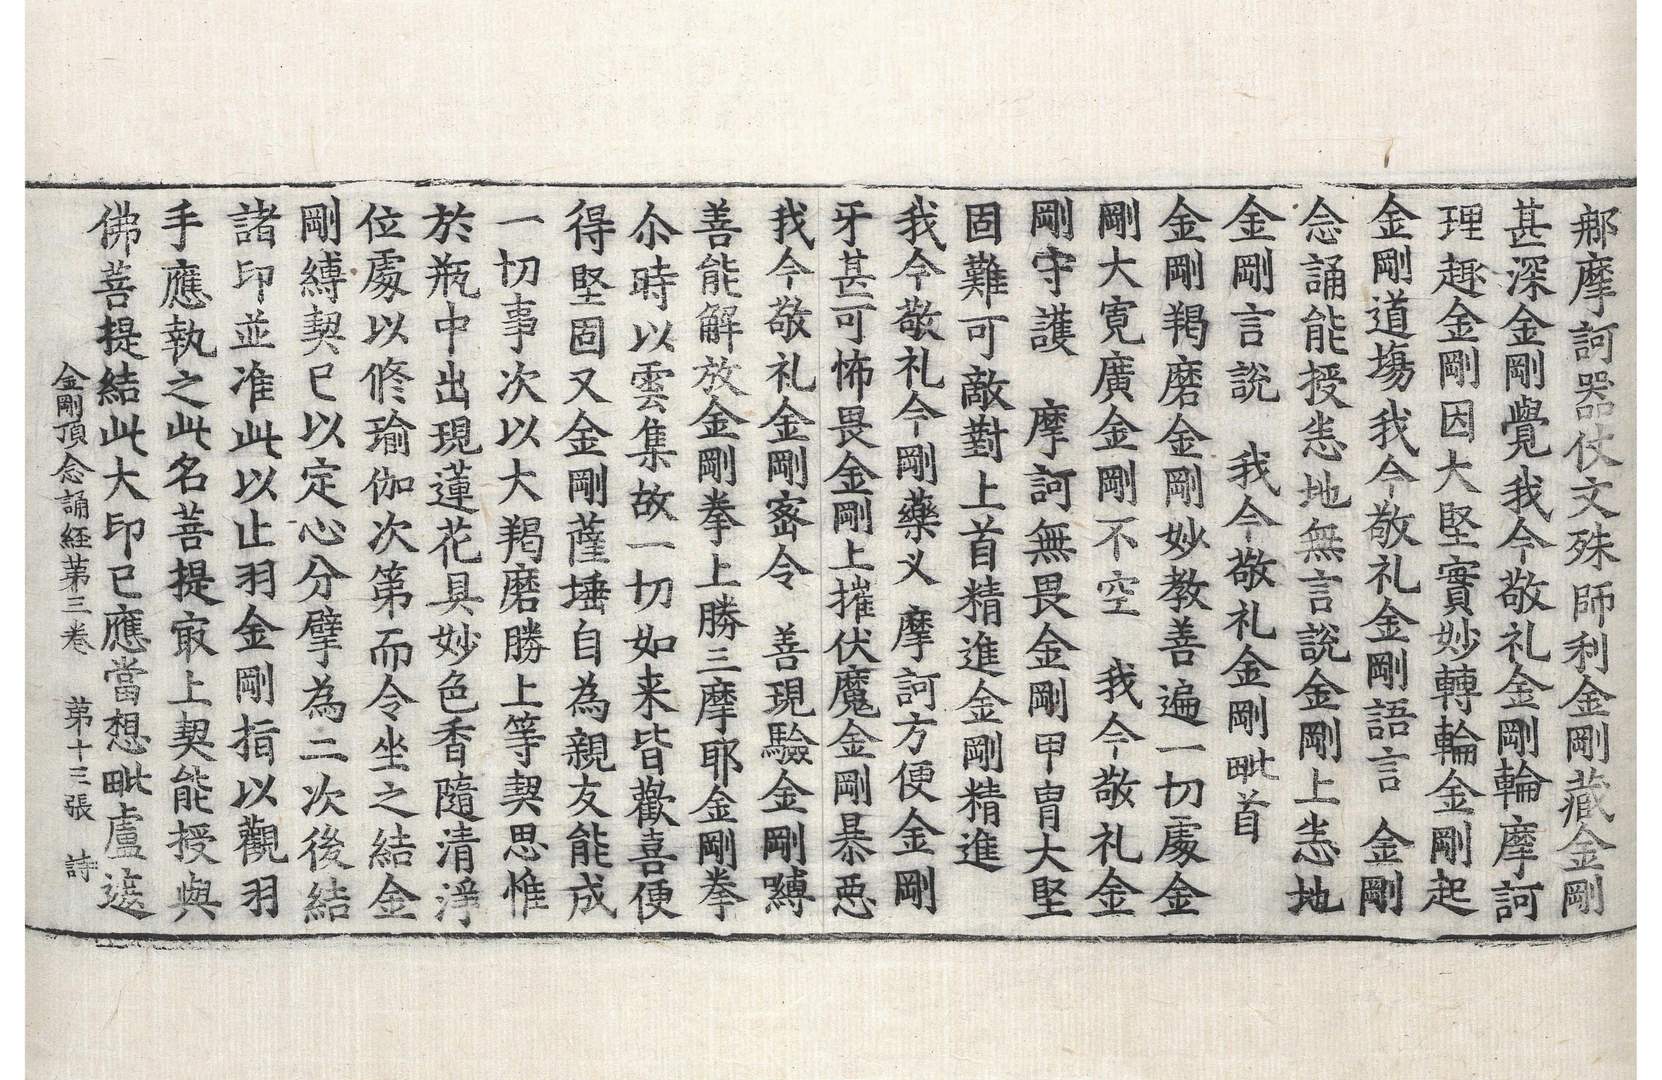 那摩訶器仗文殊師利金剛藏金剛
甚深金剛覺我今敬礼金剛輪摩訶
理趣金剛因大堅實妙轉輪金剛起
金剛道塲我今敬礼金剛語言　金剛
念誦能授悉地無言說金剛上悉地
金剛言說　我今敬礼金剛毗首
金剛羯磨金剛妙教善遍一切處金
剛大寛廣金剛不空　我今敬礼金
剛守護　摩訶無畏金剛甲冑大堅
固難可敵對上首精進金剛精進
我今敬礼今剛藥义　摩訶方便金剛
牙甚可怖畏金剛上摧伏魔金剛暴惡
我今敬礼金剛宻令　善現驗金剛縛
善能解放金剛拳上勝三摩耶金剛拳
尒時以雲集故一切如来皆歡喜便
得堅固又金剛薩埵自為親友能成
一切事次以大羯磨勝上等契思惟
於瓶中出現蓮花具妙色香隨清淨
位處以修瑜伽次第而令坐之結金
剛縛契已以定心分擘為二次後結
諸印並准此以止羽金剛指以觀羽
手應執之此名菩提㝡上契能授與
佛菩提結此大印已應當想毗盧遮
金剛頂念誦経苐三卷　苐十三張　詩